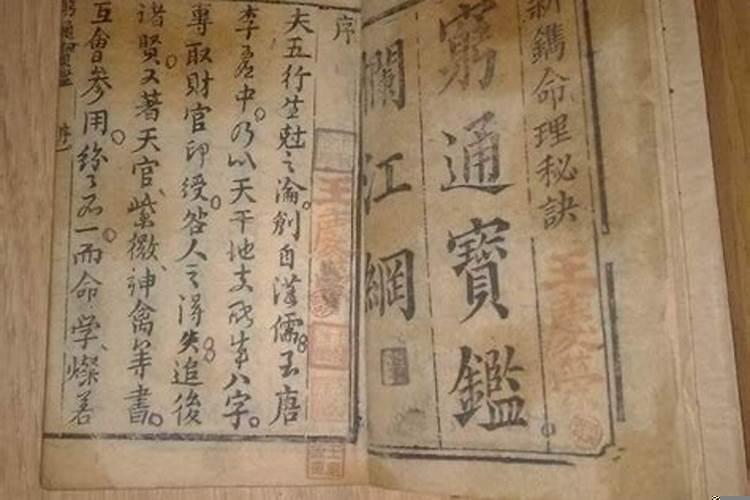 新鐫命理秘訣
窮通寶鑑
欄江網
序
夫五行生尅之論創自漢儒至唐
李虛中乃以天干地支配成八字
專取財官印綬咎人之得失追後
諸賢又著天官紫微神禽等書
互會參用紛紛不一而命學燦若